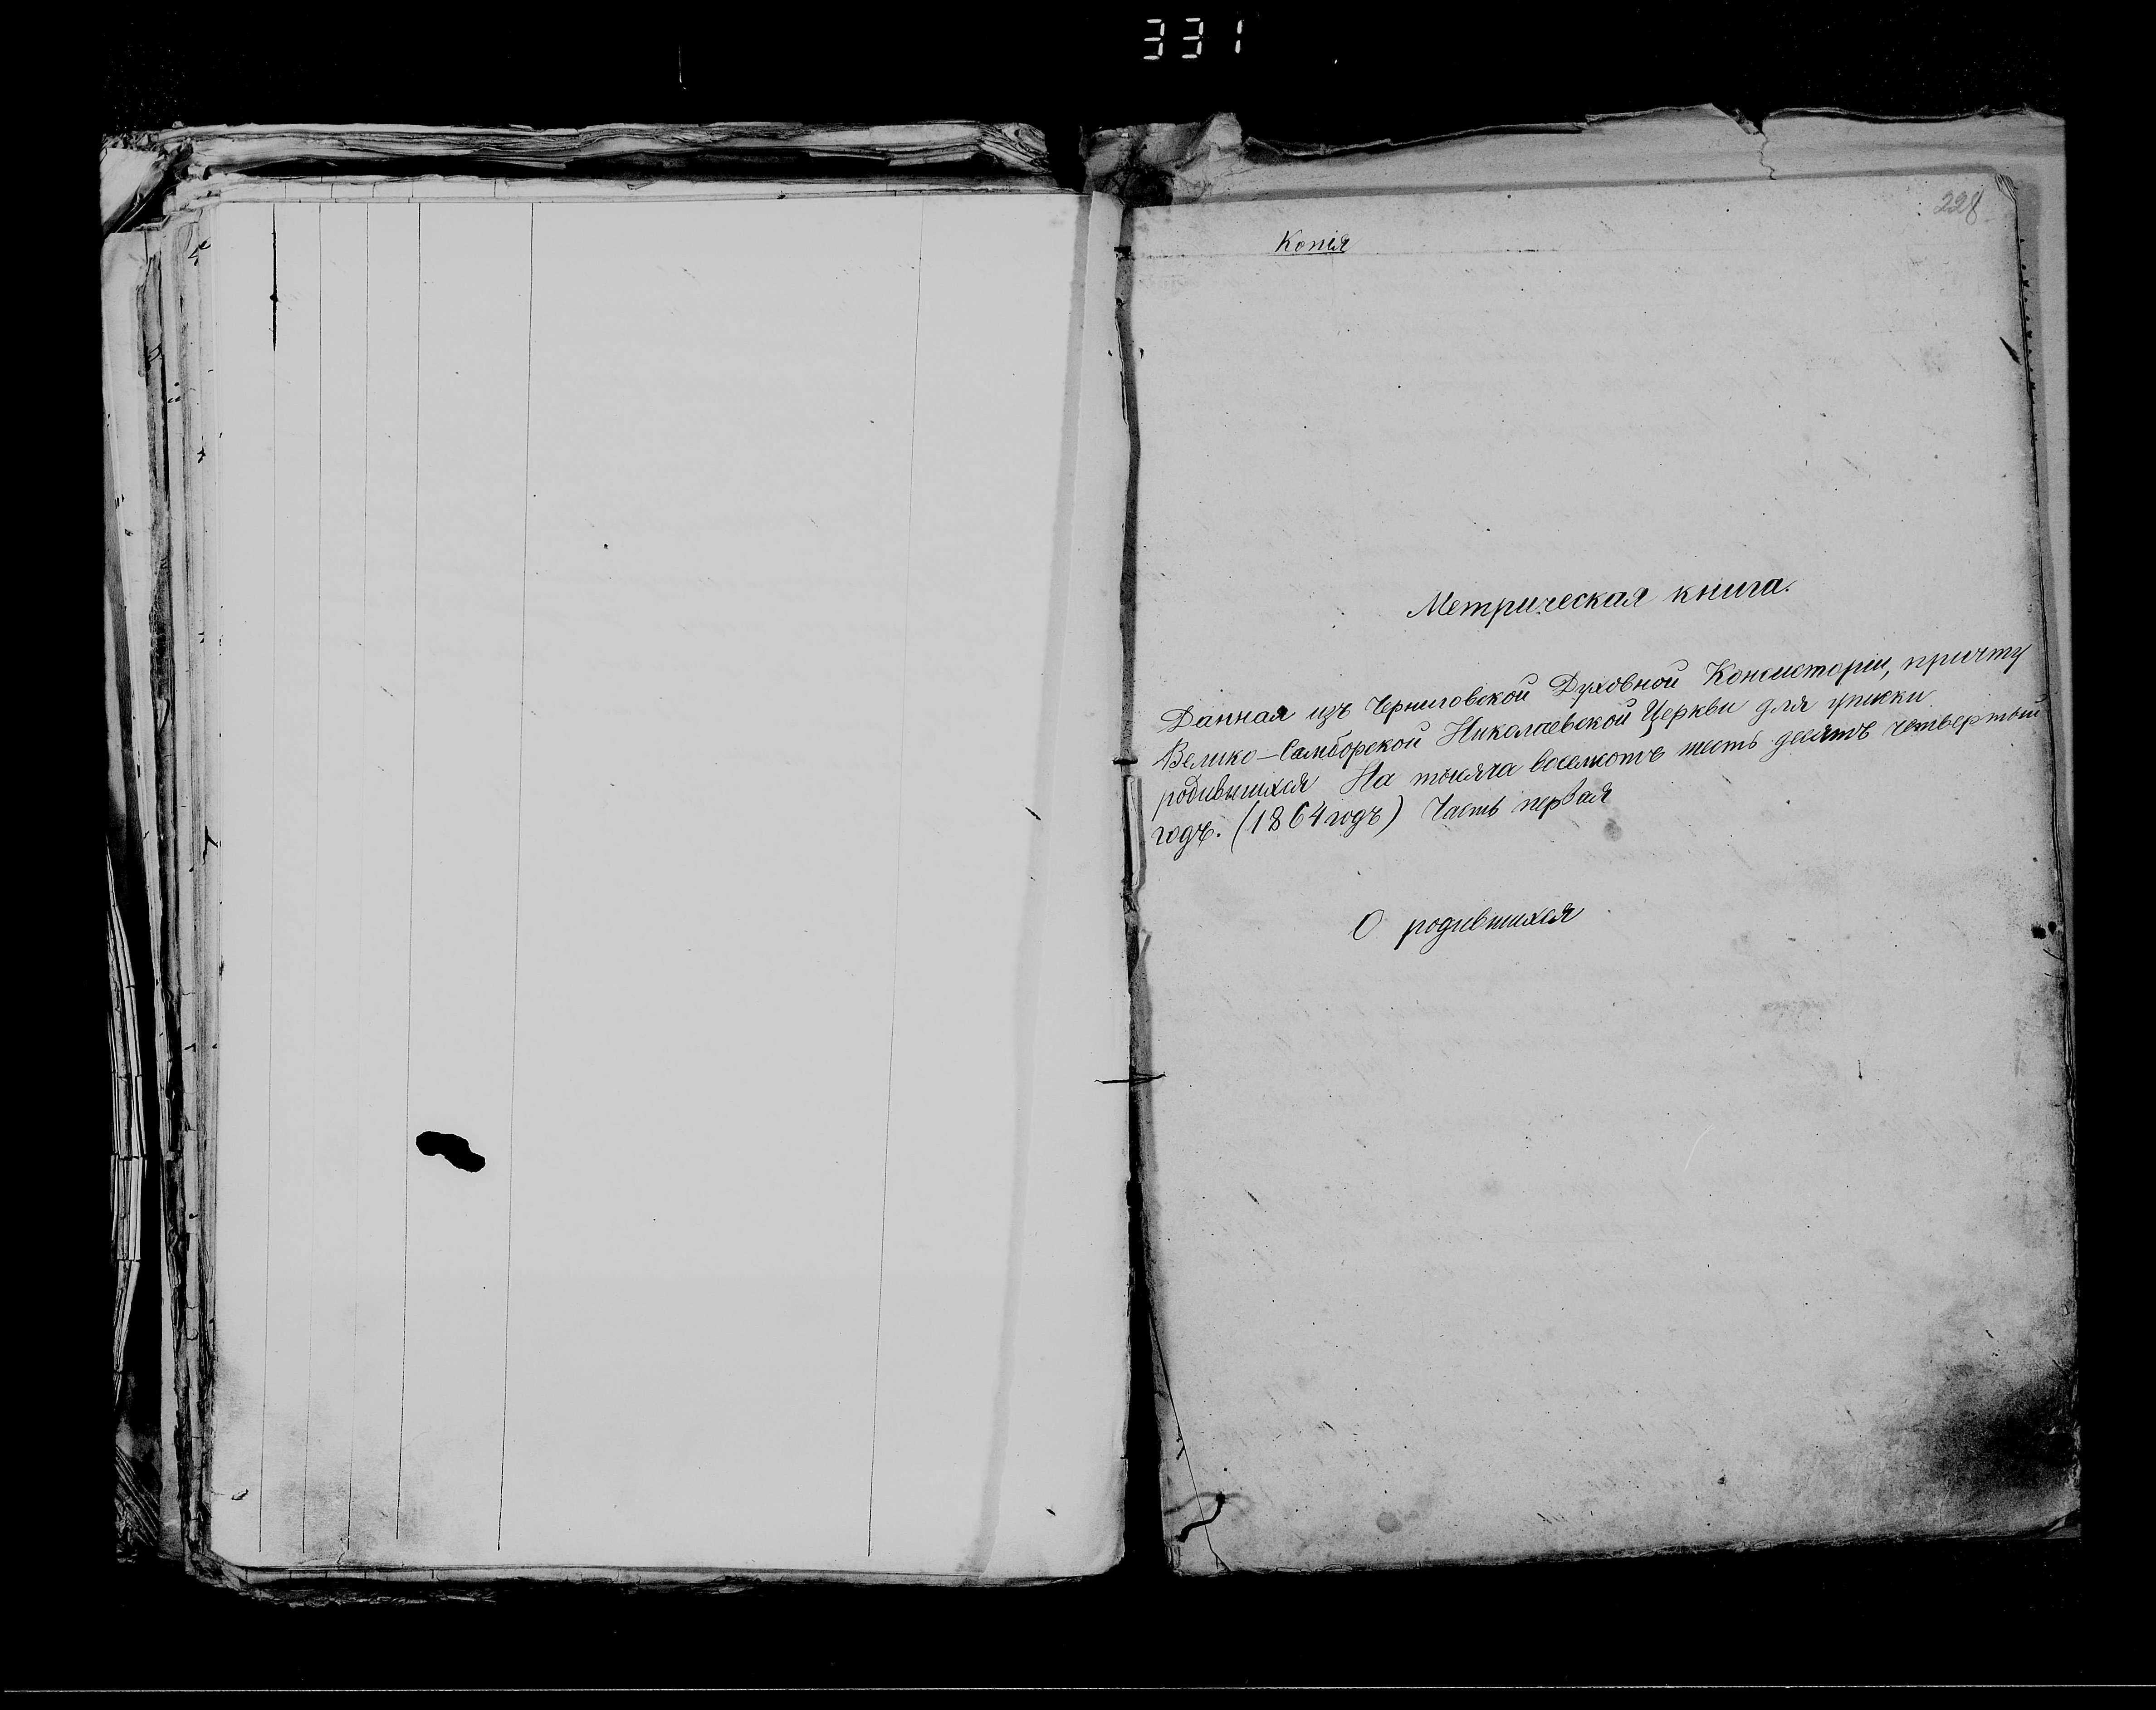 331
228
Копія
Метрическая книга.
Данная изъ Черниговской Духовной Консисторіи, причту
Велико-Самборской Николаевской Церкви для
родившихся На тысяча восемсотъ шесть десятъ четвертый
годъ. (1864 годъ) Часть первая
О родившихся